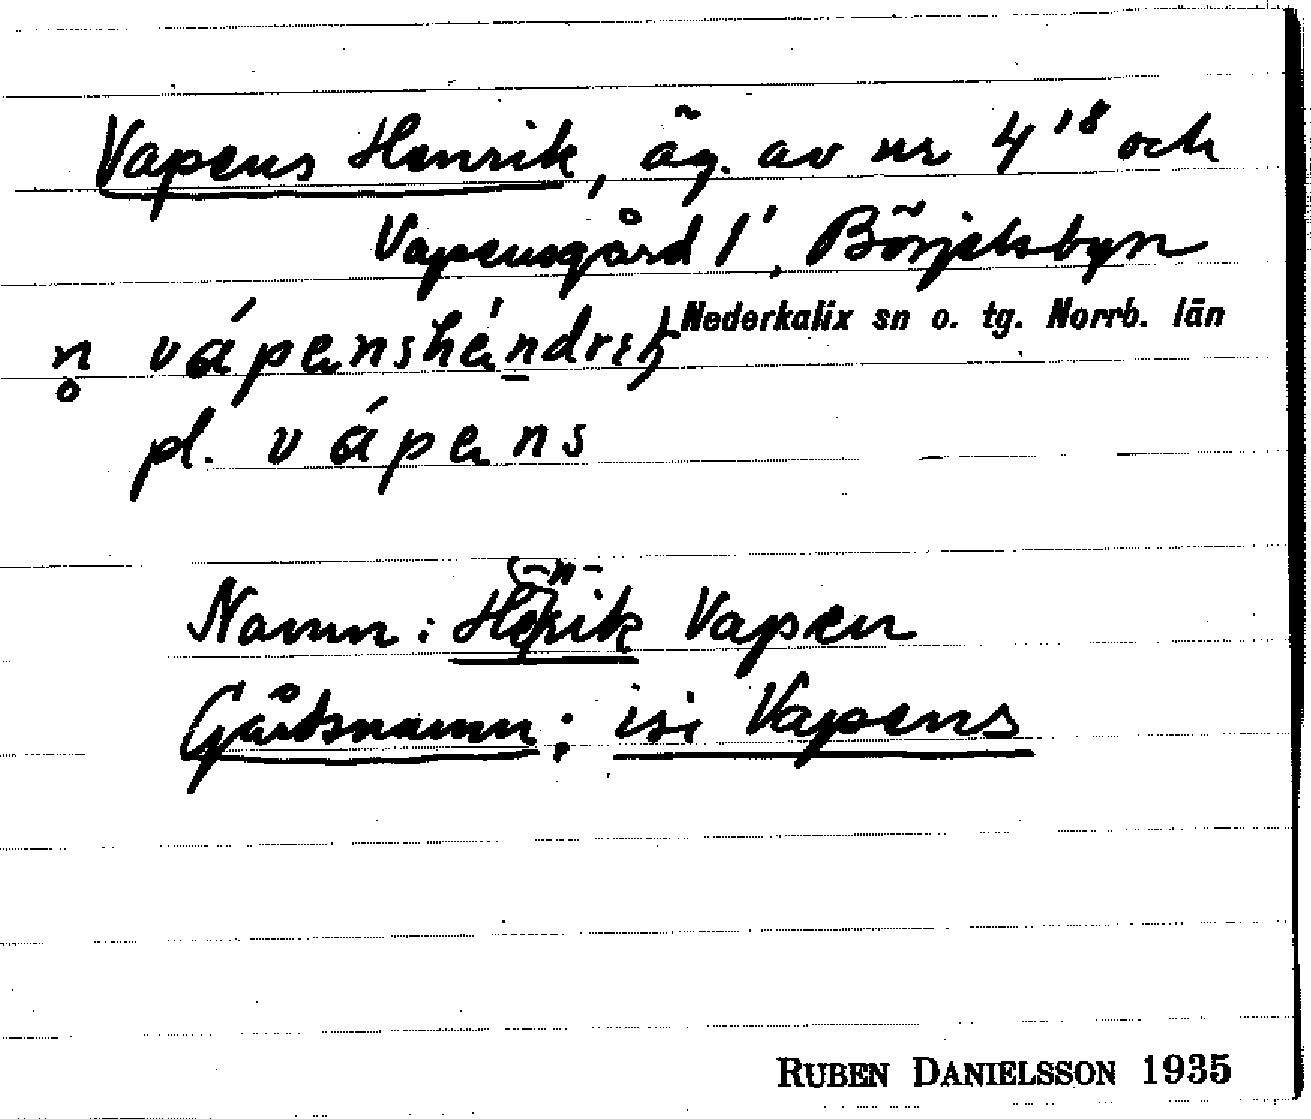 Vapens Henrik, äg. av nr 4¹⁸ och
Vapensgård 1¹, Börjelsbyn
Nederkalix sn o. tg. Norrb. län
n̥ vápenshéndrik
pl. vápens
-n-
Namn: Henrik Vapen
Gårdsnamn: isi Vapens
RUBEN DANIELSSON 1935